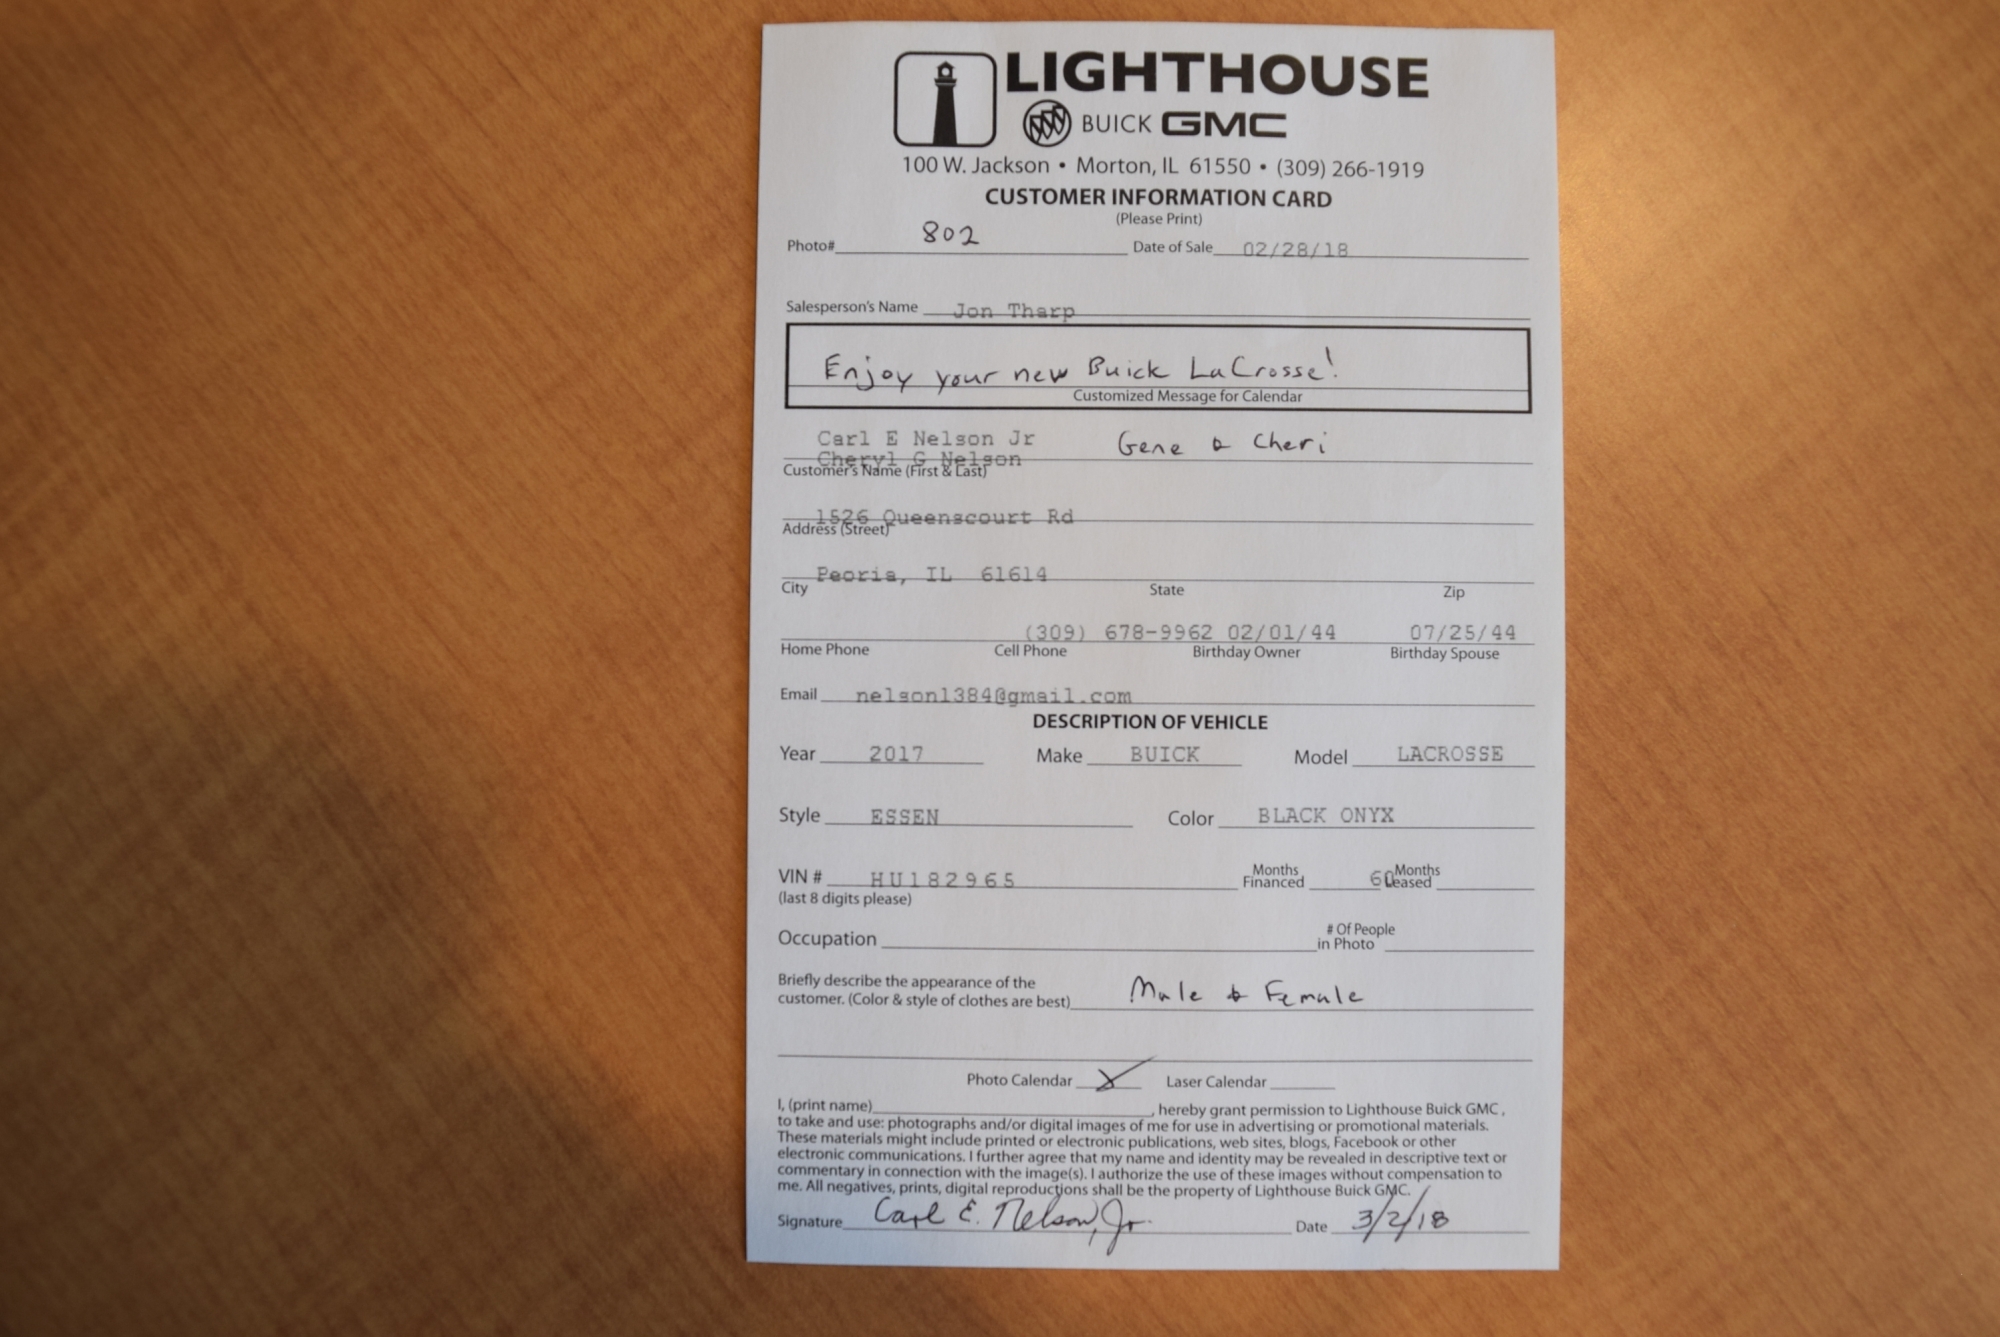 LIGHTHOUSE
BUICK GMC
100 W. Jackson • Morton, IL 61550 • (309) 266-1919
CUSTOMER INFORMATION CARD
(Please Print)
Photo# 802 Date of Sale 02/28/18
Salesperson's Name Jon Tharp
Enjoy your new Buick LaCrosse!
Customized Message for Calendar
Carl E Nelson Jr Gene & Cheri
Cheryl G Nelson
Customer's Name (First & Last)
1526 Queenscourt Rd
Address (Street)
Peoria, IL 61614
City State Zip
(309) 678-9962 02/01/44 07/25/44
Home Phone Cell Phone Birthday Owner Birthday Spouse
Email nelson1384@gmail.com
DESCRIPTION OF VEHICLE
Year 2017 Make BUICK Model LACROSSE
Style ESSEN Color BLACK ONYX
VIN # HU182965 Months Financed 60 Months Leased
(last 8 digits please)
Occupation # Of People in Photo
Briefly describe the appearance of the
customer. (Color & style of clothes are best) Male & Female
Photo Calendar X Laser Calendar
I, (print name) , hereby grant permission to Lighthouse Buick GMC ,
to take and use: photographs and/or digital images of me for use in advertising or promotional materials.
These materials might include printed or electronic publications, web sites, blogs, Facebook or other
electronic communications. I further agree that my name and identity may be revealed in descriptive text or
commentary in connection with the image(s). I authorize the use of these images without compensation to
me. All negatives, prints, digital reproductions shall be the property of Lighthouse Buick GMC.
Signature Carl E. Nelson, Jr. Date 3/2/18